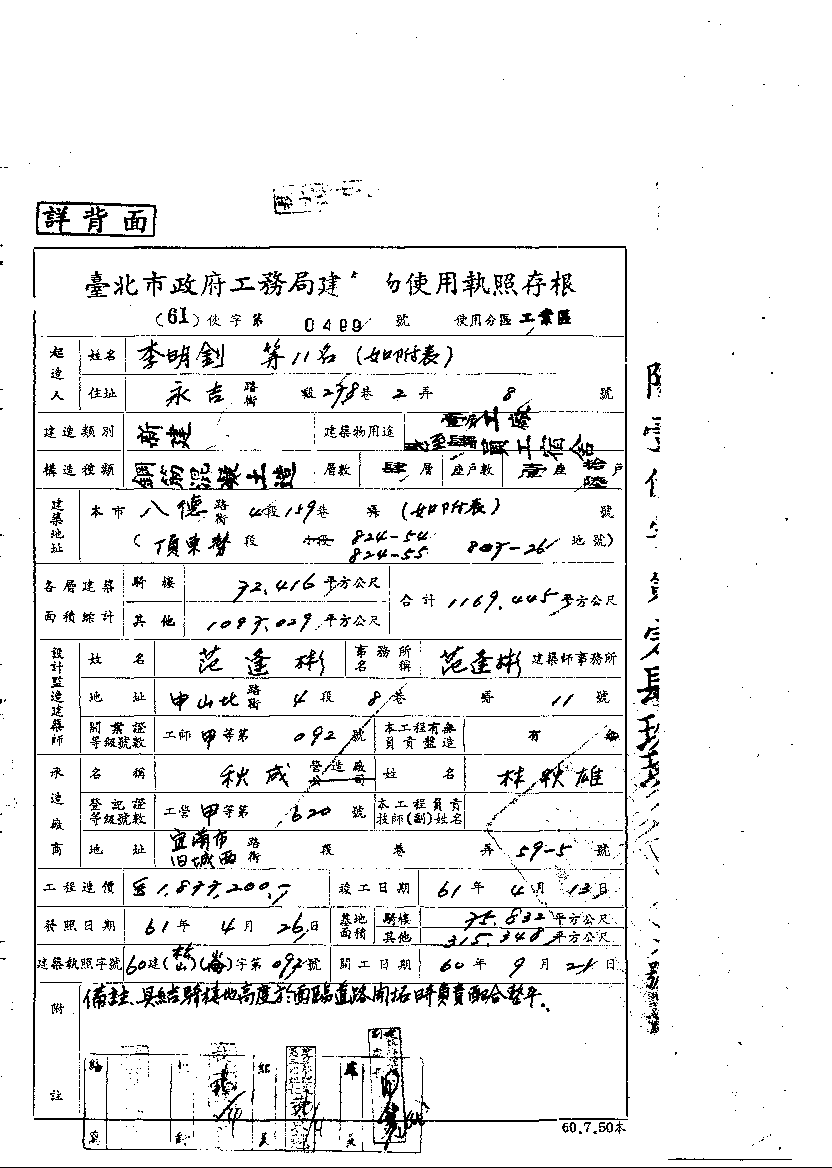 詳背面
臺北市政府工務局建 使用執照存根
(61)使字第 0499 號 使用分區 工業區
起造人 姓名 李明釗 等11名(如附表)
住址 永吉 路街 段 278巷 2弄 8 號
建造類別 新建 建築物用途 工廠 員工宿舍
構造種類 鋼筋混凝土造 層數 肆層 座戶數 座拾陸戶
建築地址 本市 八德 路街 4段 159巷 (如附表) 號
(頂東勢 段 小段 824-54 824-55 807-26 地號)
各層建築面積綜計 騎樓 72.416 平方公尺 合計 1169.445 平方公尺
其他 1097.029 平方公尺
設計監造建築師 姓名 范逢彬 事務所名稱 范逢彬 建築師事務所
地址 中山北 路街 4段 8巷 弄 11號
開業證等級號數 工師甲等第 092 號 本工程有無負責監造 有
承造廠商 名稱 秋成 營造廠公司 姓名 林秋雄
登記證等級號數 工營甲等第 620 號 本工程負責技師(副)姓名
地址 宜蘭市旧城西 路街 段 巷 弄 59-5 號
工程造價 1,877,200 竣工日期 61年 4月 13日
發照日期 61年 4月 26日 基地面積 騎樓 75.832 平方公尺
其他 315.348 平方公尺
建築執照字號 60建( )( )字第 092 號 開工日期 60年 9月 21日
附註 備註、具結騎樓地高度於面臨道路開拓時負責配合整平。
60.7.50本